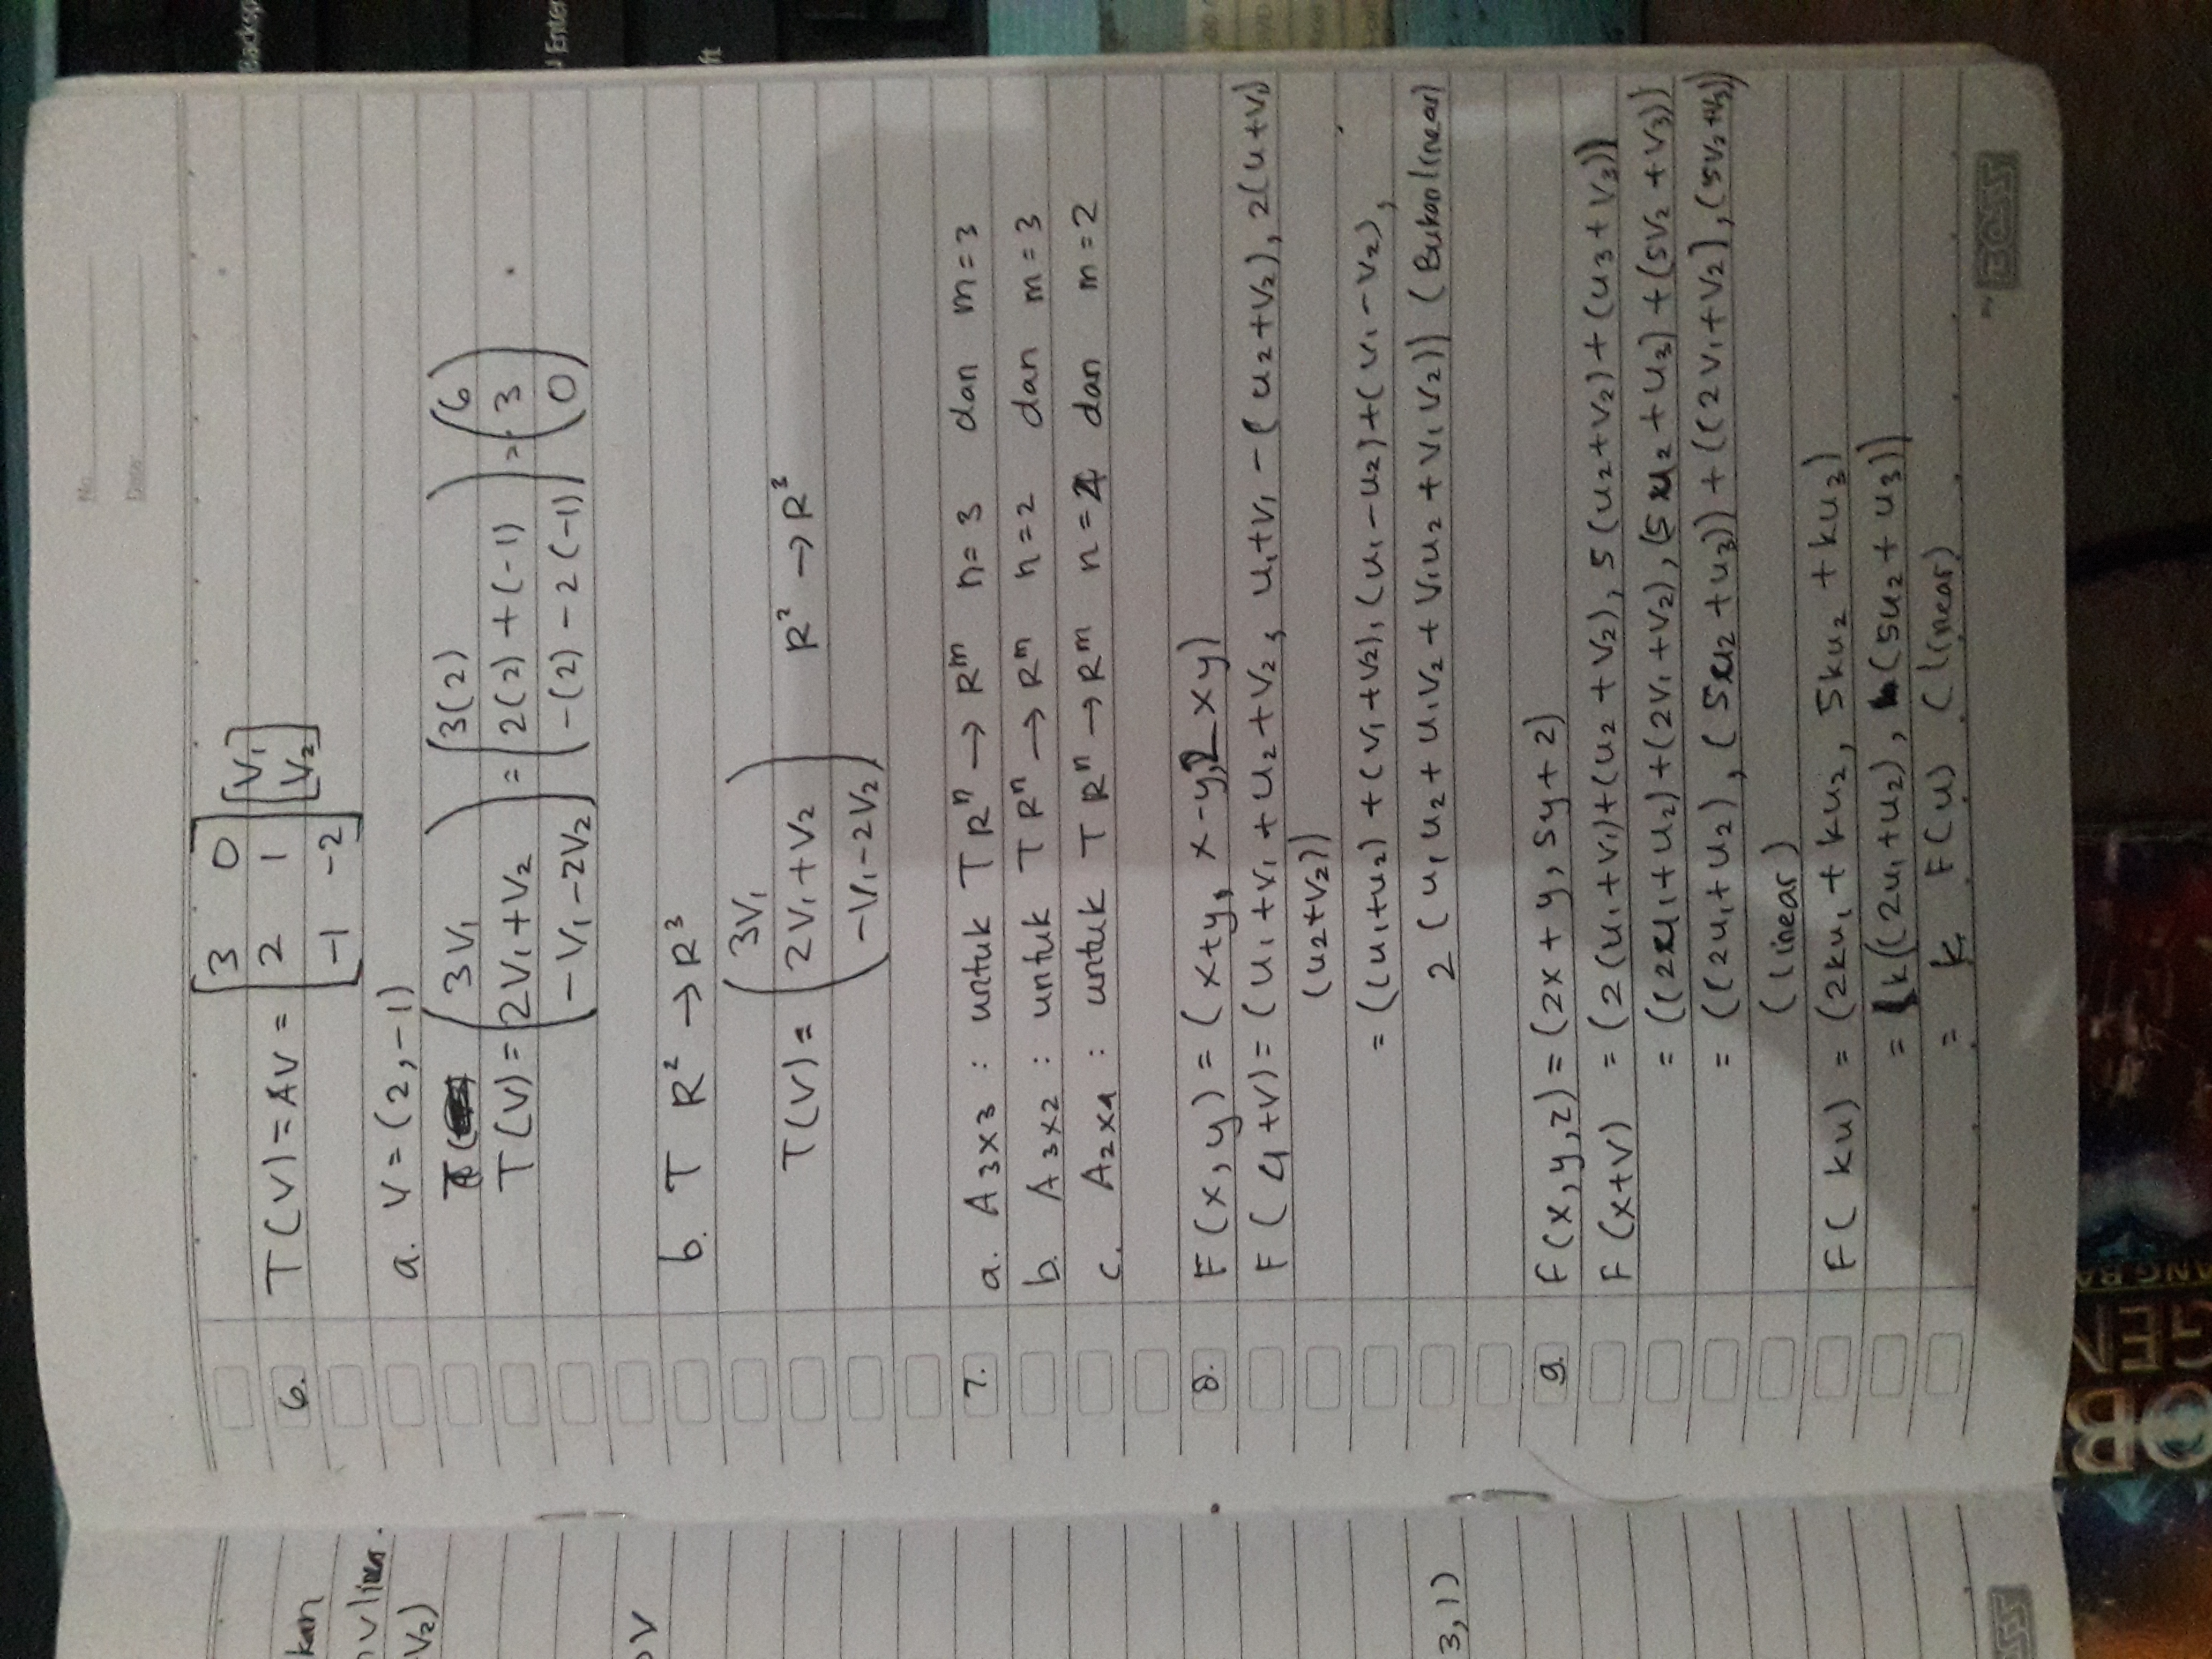 No
Date:
6. T(V) = AV = [3 0; 2 1; -1 -2] [V1; V2]
a. V = (2, -1)
T(V) = (3V1; 2V1 + V2; -V1 - 2V2) = (3(2); 2(2) + (-1); -(2) - 2(-1)) = (6; 3; 0)
b. T R² → R³
T(V) = (3V1; 2V1 + V2; -V1 - 2V2) R² → R³
7. a. A 3x3 : untuk T Rⁿ → Rᵐ n = 3 dan m = 3
b. A 3x2 : untuk T Rⁿ → Rᵐ n = 2 dan m = 3
c. A 2x4 : untuk T Rⁿ → Rᵐ n = 4 dan m = 2
8. F(x, y) = (x+y, x-y, 2xy)
F(u+v) = (u1 + v1 + u2 + v2, u1+v1 - (u2+v2), 2(u+v1)
(u2+v2))
= ((u1+u2) + (v1+v2), (u1-u2) + (v1-v2),
2(u1u2 + u1v2 + v1u2 + v1v2)) (Bukan linear)
9. F(x, y, z) = (2x + y, 5y + z)
F(x+v) = (2(u1+v1)+(u2+v2), 5(u2+v2)+(u3+v3))
= ((2u1+u2)+(2v1+v2), (5u2+u3)+(5v2+v3))
= ((2u1+u2), (5u2+u3)) + ((2v1+v2), (5v2+v3))
(linear)
F(ku) = (2ku1 + ku2, 5ku2 + ku3)
= k((2u1+u2), (5u2+u3))
= k F(u) (linear)
BOSS
kan
V2)
3,1)
Backsp
Enter
ft